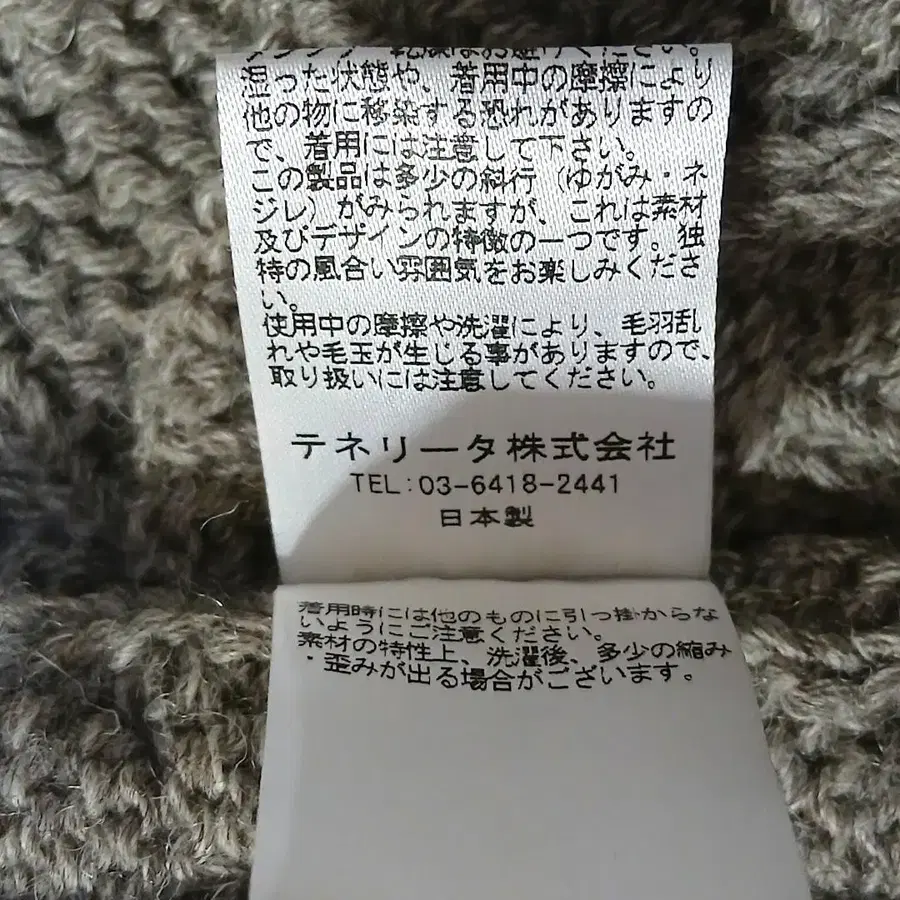 タンブラー乾燥はお避けください。
湿った状態や、着用中の摩擦により
他の物に移染する恐れがありますの
で、着用には注意して下さい。
この製品は多少の斜行（ゆがみ・ネ
ジレ）がみられますが、これは素材
及びデザインの特徴の一つです。独
特の風合い雰囲気をお楽しみくださ
い。
使用中の摩擦や洗濯により、毛羽乱
れや毛玉が生じる事がありますので、
取り扱いには注意してください。
テネリータ株式会社
TEL:03-6418-2441
日本製
着用時には他のものに引っ掛からな
いようにご注意ください。
素材の特性上、洗濯後、多少の縮み
・歪みが出る場合がございます。